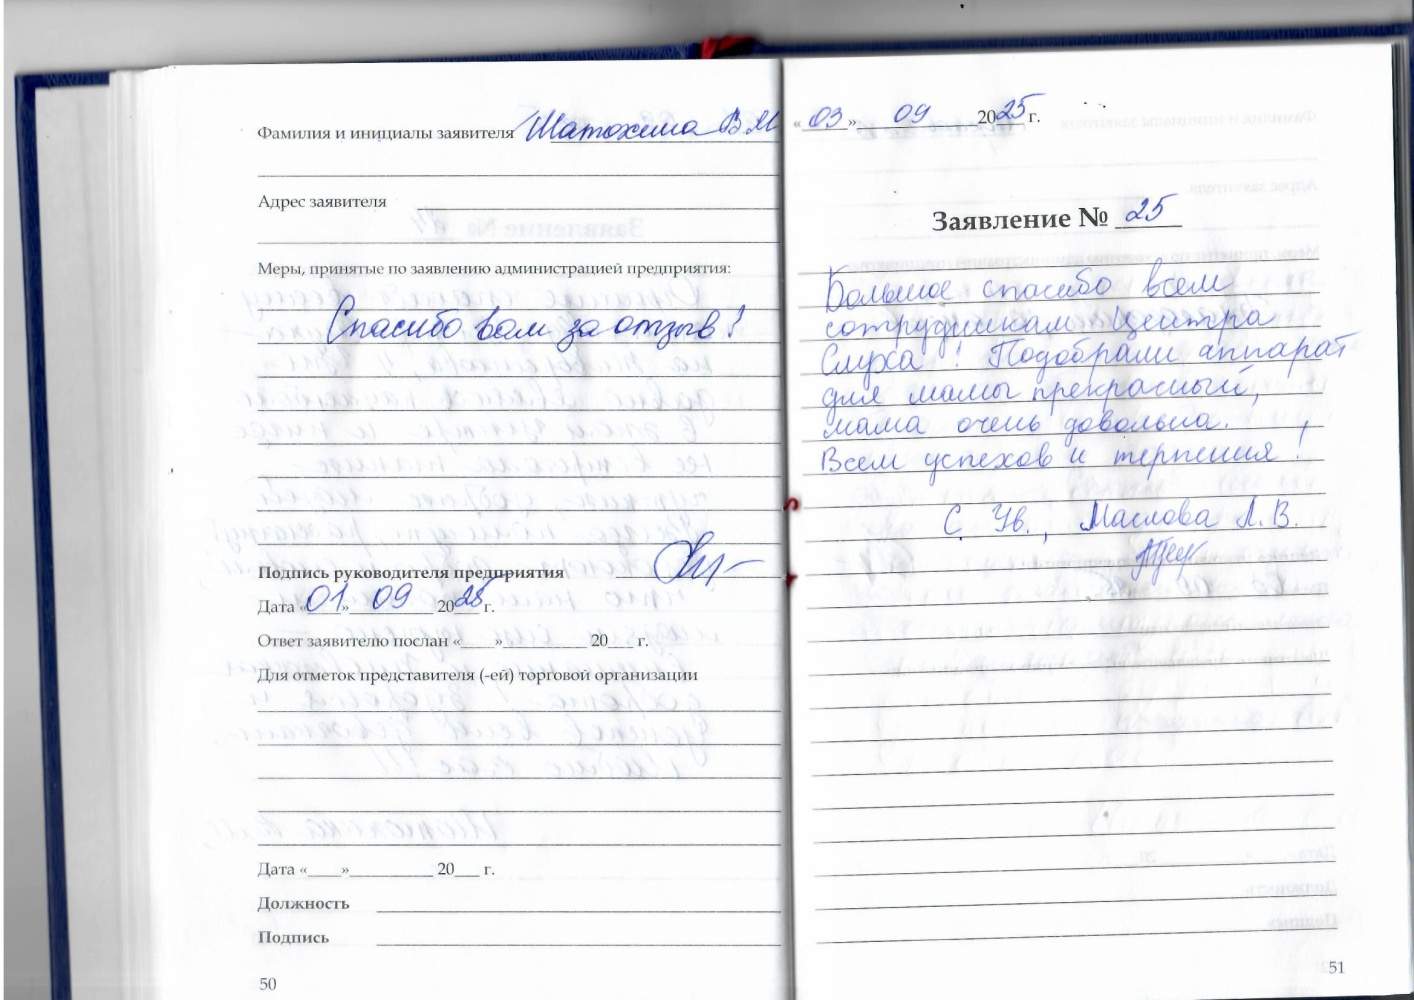 Фамилия и инициалы заявителя Шатохина В.М
Адрес заявителя
Меры, принятые по заявлению администрацией предприятия:
Спасибо вам за отзыв!
Подпись руководителя предприятия
Дата «01» 09 2025 г.
Ответ заявителю послан «____»__________ 20___ г.
Для отметок представителя (-ей) торговой организации
Дата «____»__________ 20___ г.
Должность
Подпись
50
«03» 09 2025 г.
Заявление № 25
Большое спасибо всем
сотрудникам Центра
Слуха! Подобрали аппарат
для мамы прекрасный,
мама очень довольна.
Всем успехов и терпения!
С Ув., Маслова Л.В.
51